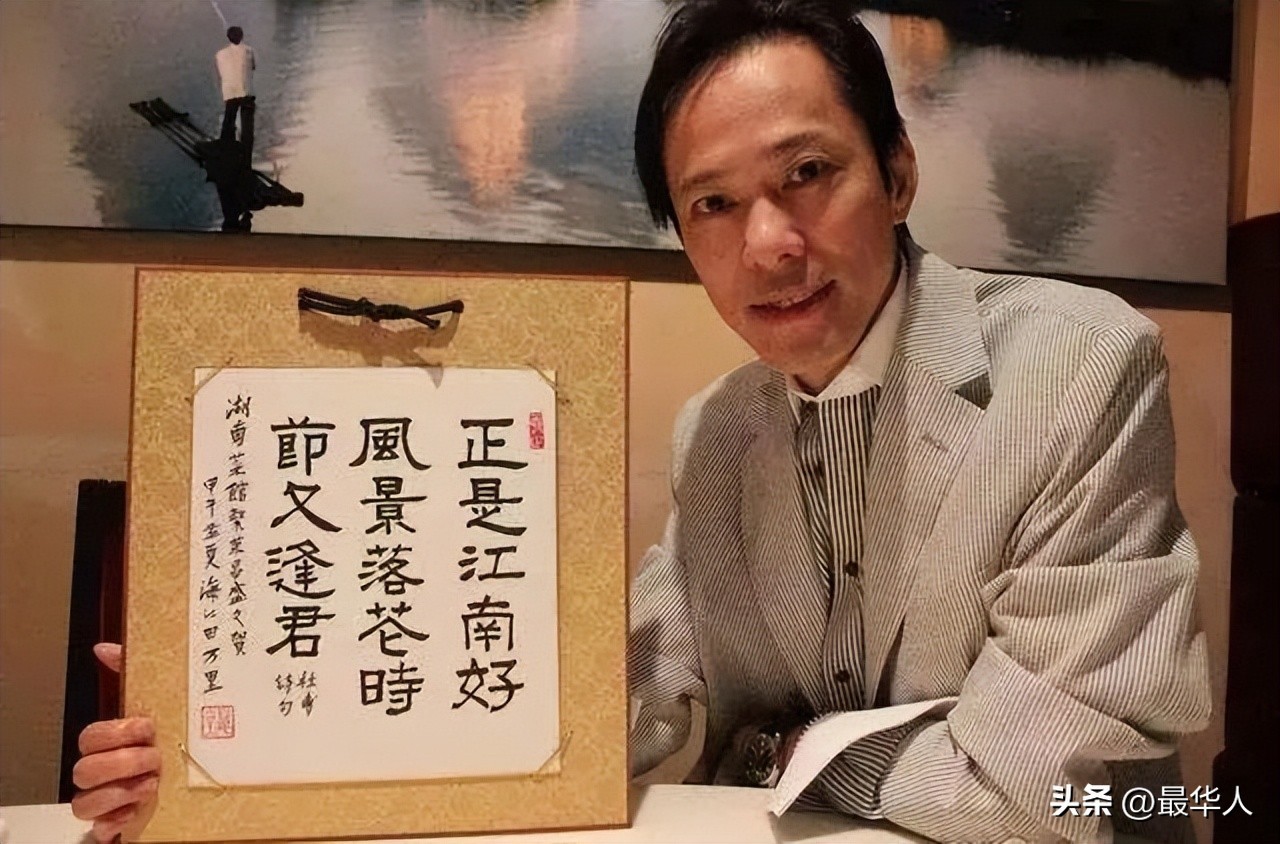 正是江南好
風景落花時
節又逢君
杜甫
詩句
湖南菜館繁荣昌盛之賀
甲午孟夏海上田万里
头条 @最华人